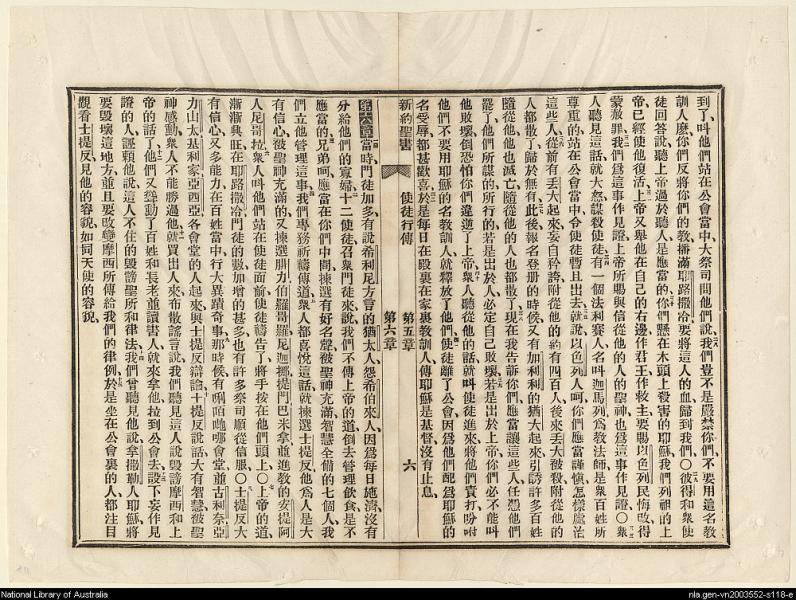 到了、叫他們站在公會當中、大祭司問他們說、我們豈不是嚴禁你們、不要用這名教
訓人麼、你們反將你們的教、播滿耶路撒冷、要將這人的血、歸到我們〇彼得和衆使
徒回答說、聽上帝過於聽人、是應當的、你們懸在木頭上殺害的耶穌、我們列祖的上
帝、已經使他復活、上帝又舉他在自己的右邊、作君王、作救主、要賜以色列民悔改、得
蒙赦罪、我們爲這事作見證、上帝所賜與信從他的人的聖神、也爲這事作見證〇衆
人聽見這話、就大怒、謀殺使徒、有一個法利賽人、名叫迦馬列、爲教法師、是衆百姓所
尊重的、站在公會當中、令使徒暫且出去、就說、以色列人呵、你們應當謹愼、怎樣處治
這些人、從前有丟大起來、妄自矜誇、附從他的、約有四百人、後來丟大被殺、附從他的
人都散了、歸於無有、此後報名登册的時候、又有加利利的猶大起來、引誘許多百姓
隨從他、他也滅亡、隨從他的人也都散了、現在我告訴你們、應當讓這些人、任憑他們
罷了、他們所謀的所行的、若是出於人、必定自己敗壞、若是出於上帝、你們必不能叫
他敗壞、倒恐怕你們違逆了上帝、衆人聽從他的話、就叫使徒進來、將他們責打、吩咐
他們、不要用耶穌的名教訓人、就釋放了他們、使徒離了公會、因爲他們配爲耶穌的
名受辱、都甚歡喜、於是每日在殿裏在家裏、教訓人、傳耶穌是基督、沒有止息、
新約聖書 使徒行傳 第五章 第六章 六
第六章當時門徒加多、有說希利尼方言的猶太人、怨希伯來人、因爲每日施濟、沒有
分給他們的寡婦、十二使徒召衆門徒來、說、我們不傳上帝的道、倒去管理飲食、是不
應當的、兄弟呵、應當在你們中間、揀選有好名聲、被聖神充滿、智慧全備的七個人、我
們立他管理這事、我們專務祈禱傳道、衆人都喜悅這話、就揀選士提反、他爲人是大
有信心、被聖神充滿的、又揀選腓力伯羅哥羅尼迦挪提門巴米拿、並進教的安提阿
人尼哥拉、衆人叫他們站在使徒面前、使徒禱告了、將手按在他們頭上〇上帝的道、
漸漸興旺、在耶路撒冷門徒的數加增的甚多、也有許多祭司順從信服〇士提反大
有信心、又多能力、在百姓當中行大異蹟奇事、那時候有
力山太基利家亞西亞各會堂的人起來、與士提反辯論、士提反說話、大有智慧、被聖
神感動、衆人不能勝過他、就買出人來、布散謠言、說、我們聽見這人說毀謗摩西和上
帝的話了、他們又聳動了百姓和長老並讀書人、就來拿他、拉到公會去、設下妄作見
證的人、誣賴他說、這人不住的毀謗聖所和律法、我們曾聽見他說、拿撒勒人耶穌、將
要毀壞這地方、並且要改變摩西所傳給我們的律例、於是坐在公會裏的人、都注目
觀看士提反、見他的容貌、如同天使的容貌、
National Library of Australia
nla.gen-vn2003552-s118-e